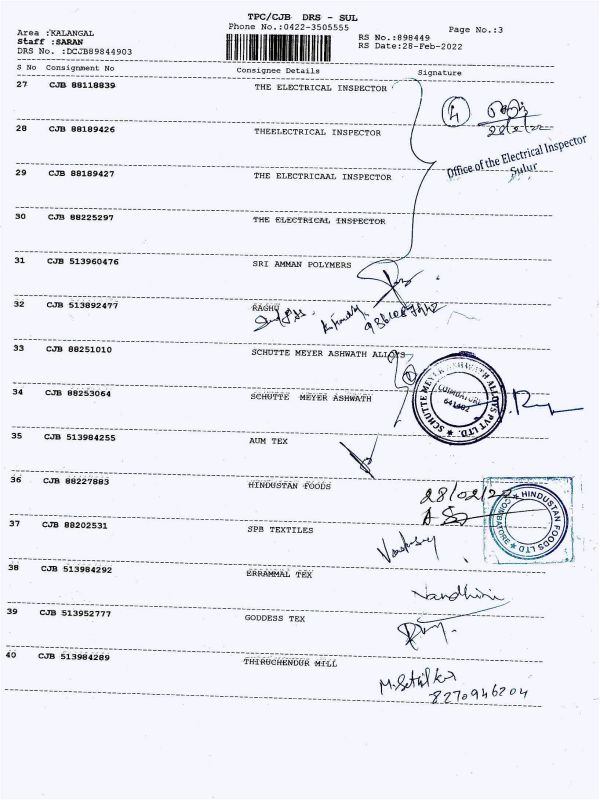 TPC/CJB DRS - SUL
Phone No.:0422-3505555
Page No.:3
Area :KALANGAL
Staff :SARAN
DRS No. :DCJB89844903
RS No.:898449
RS Date:28-Feb-2022
S No Consignment No Consignee Details Signature
27 CJB 88118839 THE ELECTRICAL INSPECTOR
4
28/2/22
28 CJB 88189426 THEELECTRICAL INSPECTOR
Office of the Electrical Inspector
Sulur
29 CJB 88189427 THE ELECTRICAAL INSPECTOR
30 CJB 88225297 THE ELECTRICAL INSPECTOR
31 CJB 513960476 SRI AMMAN POLYMERS
32 CJB 513892477 RAGHU
33 CJB 88251010 SCHUTTE MEYER ASHWATH ALLOYS
2
SCHUTTE MEYER ASHWATH ALLOYS PVT LTD.
COIMBATORE
641402
34 CJB 88253064 SCHUTTE MEYER ASHWATH
35 CJB 513984255 AUM TEX
36 CJB 88227883 HINDUSTAN FOODS
28/02/22
HINDUSTAN FOODS LTD
COIMBATORE
37 CJB 88202531 SPB TEXTILES
38 CJB 513984292 ERRAMMAL TEX
Nandhini
39 CJB 513952777 GODDESS TEX
40 CJB 513984289 THIRUCHENDUR MILL
8270946204